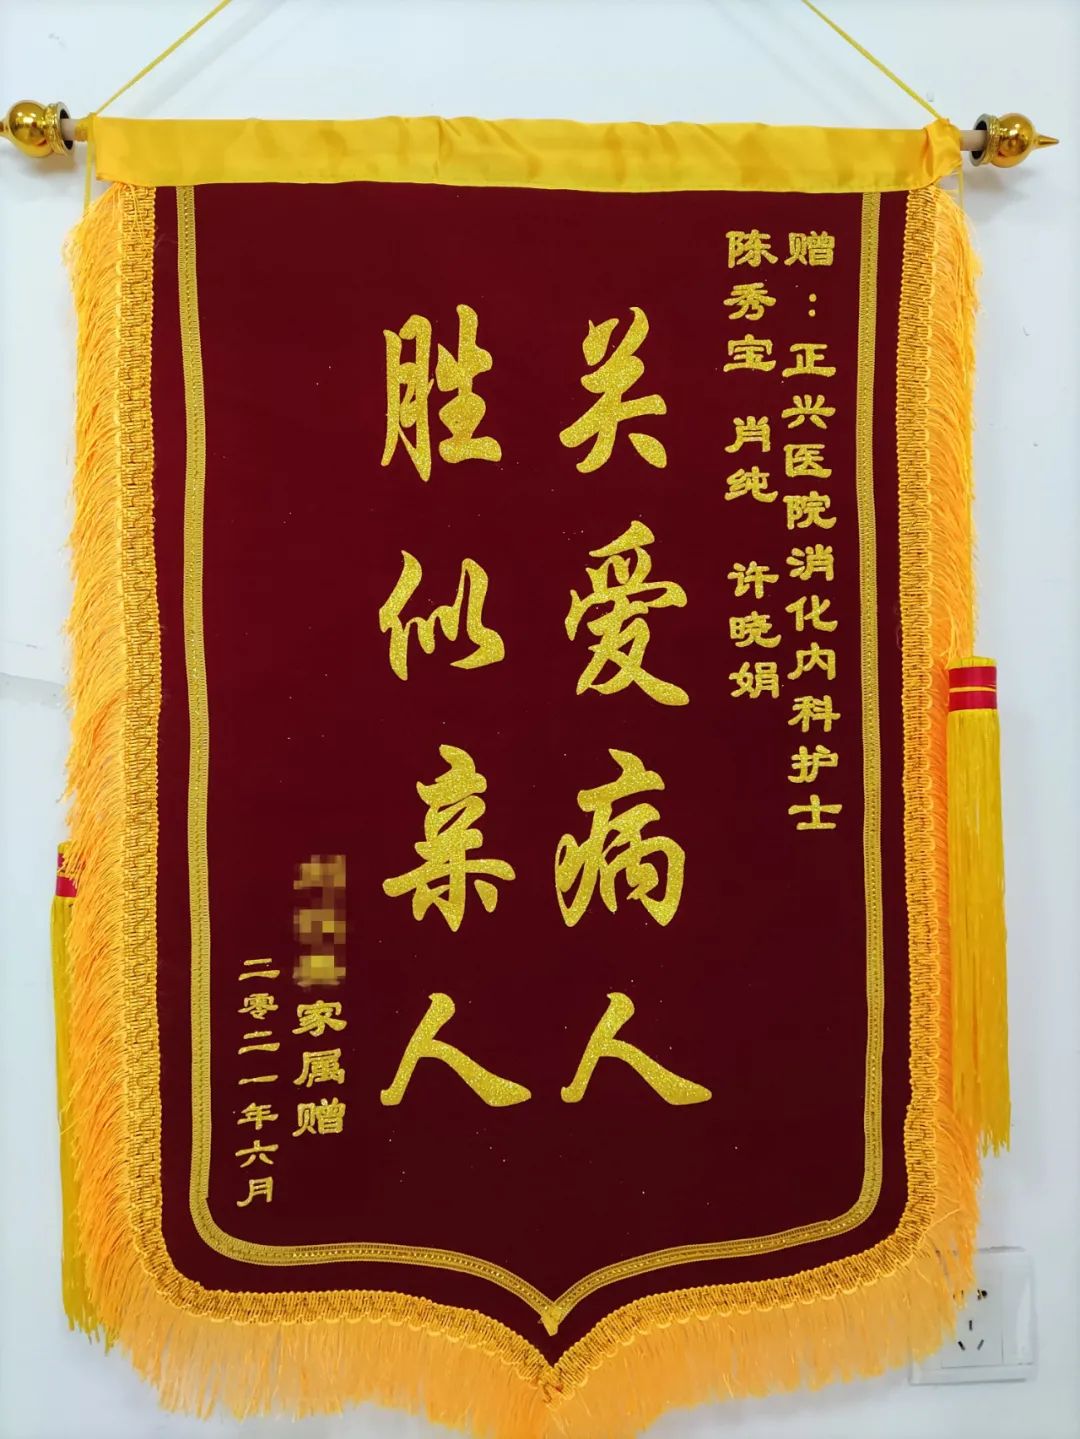 赠：正兴医院消化内科护士
陈秀宝 肖纯 许晓娟
关爱病人
胜似亲人
家属赠
二零二一年六月